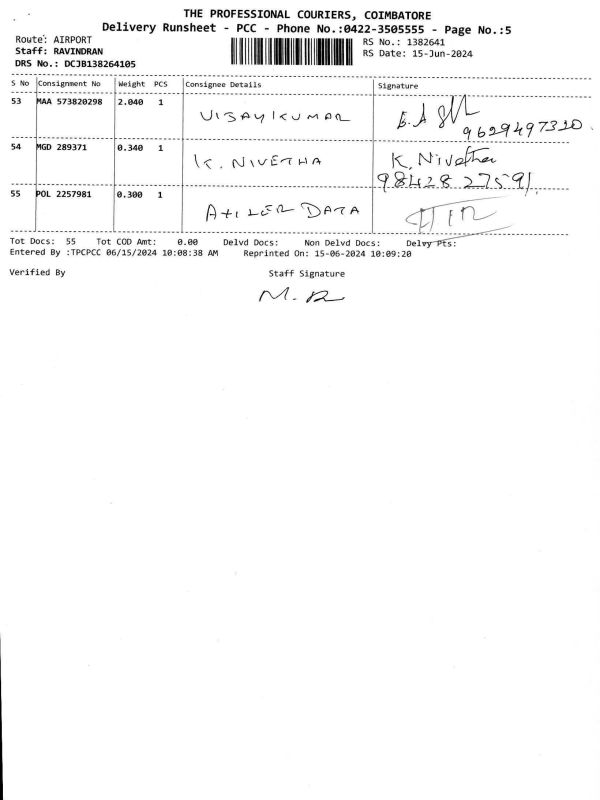 THE PROFESSIONAL COURIERS, COIMBATORE
Delivery Runsheet - PCC - Phone No.:0422-3505555 - Page No.:5
Route: AIRPORT
RS No.: 1382641
Staff: RAVINDRAN
RS Date: 15-Jun-2024
DRS No.: DCJB138264105
S No Consignment No Weight PCS Consignee Details Signature
53 MAA 573820298 2.040 1 VIJAYIKUMAR
9629497320.
54 MGD 289371 0.340 1 K. NIVETHA K. Nivetha
98428 27591.
55 POL 2257981 0.300 1 DATA
Tot Docs: 55 Tot COD Amt: 0.00 Delvd Docs: Non Delvd Docs: Delvy Pts:
Entered By :TPCPCC 06/15/2024 10:08:38 AM Reprinted On: 15-06-2024 10:09:20
Verified By Staff Signature
M. R